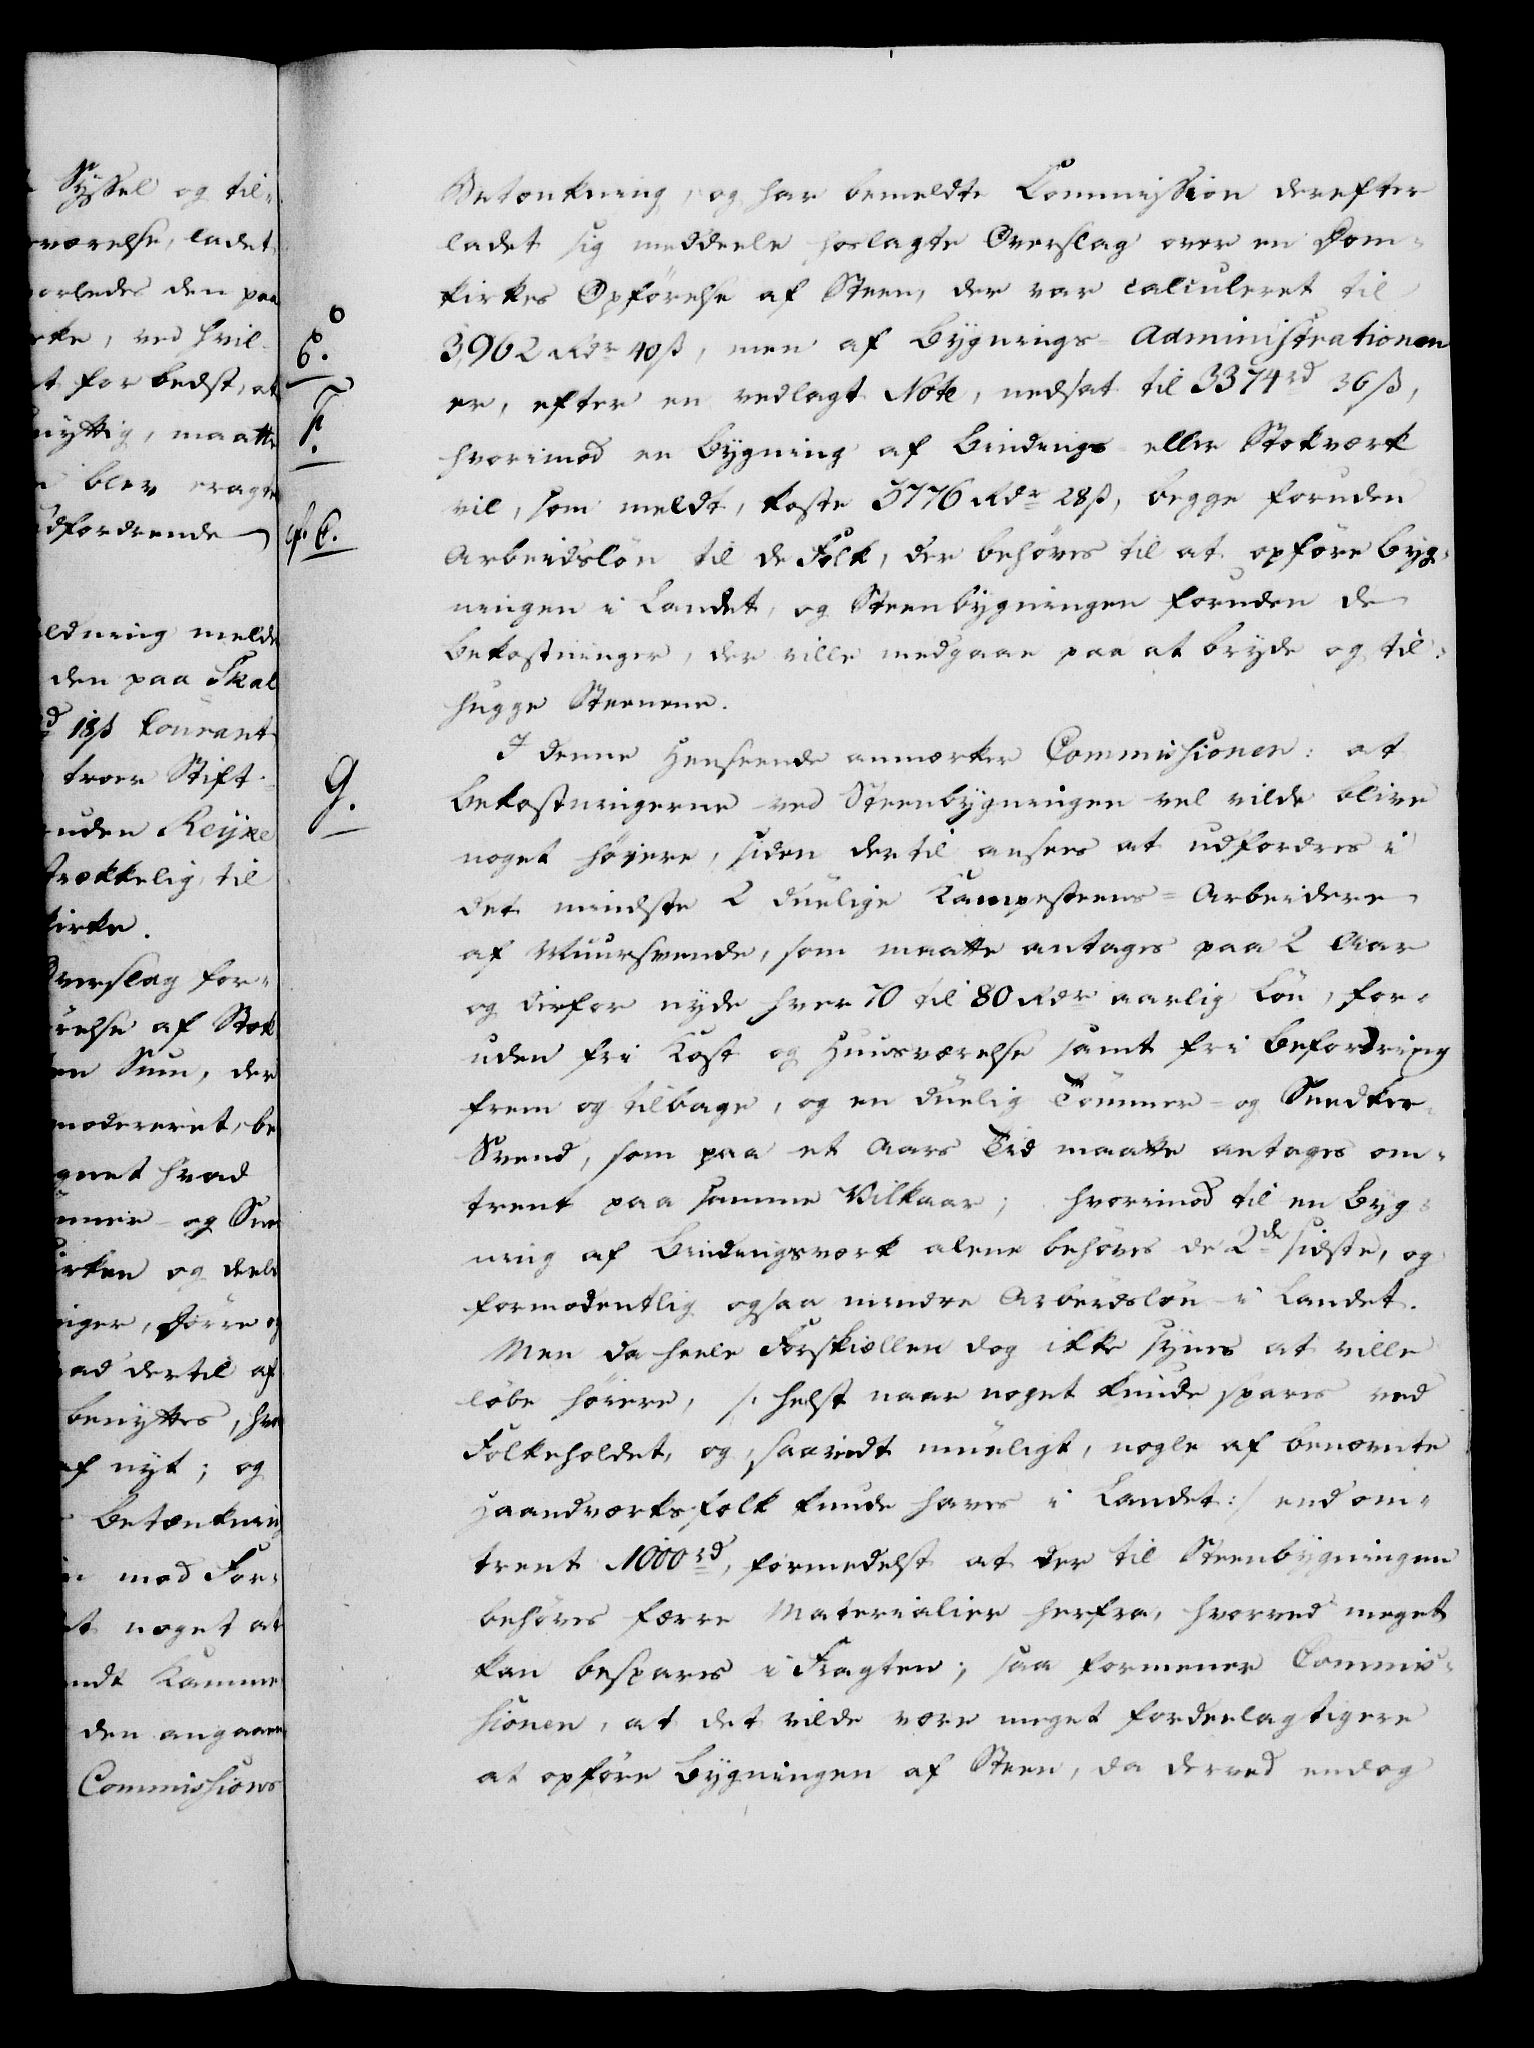 Sÿssel og til-
værelse, ladet
orledes den paa
rke, ved hvil-
t for bedst, at
nyttig, maatte
blev eragte
dfordrende
ldning melde
den paa Skal
18ß Courant
troer Stift-
uden Reyxe
trækkelig til
kirke.
Overslag for-
relse af Stok
en Sum, der
modereret, be
gnet hvad
mmer- og Sne
irken og deels
niger, Dørre og
ad dertil af
benyttes, hvo
af nyt; og
Betænkning
n mod For-
t noget at
ndt Kamme
den angaaen
Commissions
Betænkning, og har bemeldte Commission derefter
ladet sig meddeele hoslagte Overslag over en Dom-
kirkes Opførelse af Steen, der var calculeret til
E.
3,962 Rdr 40ß, men af Bygnings-Administrationen
F.
er, efter en vedlagt Note, nedsat til 3374rd 36ß,
hvorimod en Bygning af Bindings- eller Stokværk
vil, som meldt, koste 3776 Rdr 28ß, begge foruden
cf. C.
Arbeidsløn til de Folk, der behøves til at opføre Byg-
ningen i Landet, og Steenbygningen foruden de
Bekostninger, der ville medgaae paa at bryde og til-
hugge Steenene.
I denne Henseende anmærker Commissionen: at
G.
Bekostningerne ved Steenbygningen vel vilde blive
noget høiere, siden dertil ansees at udfordres i
det mindste 2 duelige Kampesteens-Arbeidere
af Muursvende, som maatte antages paa 2 Aar
og derfor nyde hver 70 til 80 Rdr aarlig Løn, for-
uden fri Kost og Huusværelse samt fri Befordring
frem og tilbage, og en duelig Tømmer- og Snedker-
Svend, som paa et Aars Tid maatte antages om-
trent paa samme Vilkaar; hvorimod til en Byg-
ning af Bindingsværk alene behøves de 2de sidste, og
formodentlig ogsaa mindre Arbeidsløn i Landet.
Men da heele Forskiællen dog ikke synes at ville
løbe høiere, /: helst naar noget kunde spares ved
Folkeholdet, og, saavidt mueligt, nogle af benævnte
Haandværksfolk kunde haves i Landet :/ end om-
trent 1000rd, formedelst at der til Steenbygningen
behøves færre Materialier herfra, hvorved meget
kan bespares i Fragten; saa formener Commis-
sionen, at det vilde være meget fordeelagtigere
at opføre Bygningen af Steen, da derved endog